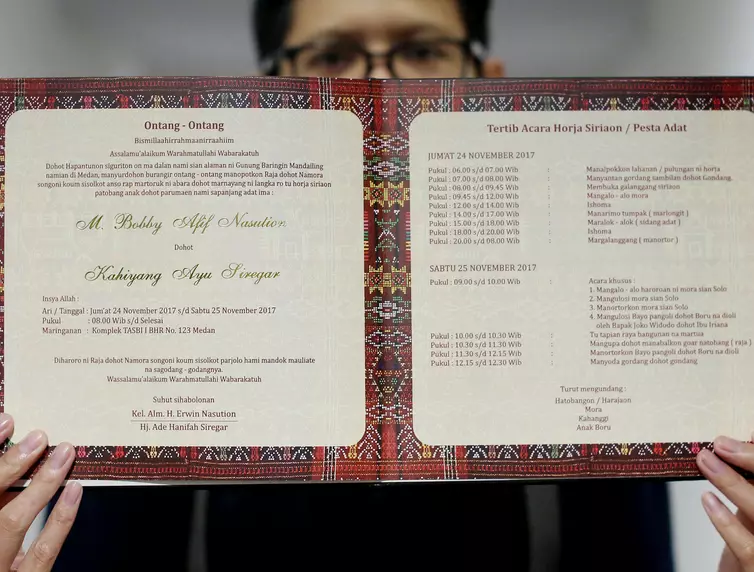 Ontang - Ontang
Bismillaahirrahmaanirraahiim
Assalamu'alaikum Warahmatullahi Wabarakatuh
Dohot Hapantunon siguriton on ma dalan nami sian alaman ni Gunung Baringin Mandailing
namian di Medan, manyurdohon burangir ontang - ontang manopotkon Raja dohot Namora
songoni koum sisolkot anso rap martoruk ni abara dohot marnayang ni langka ro tu horja siriaon
patobang anak dohot parumaen nami sapanjang adat ima :
M. Bobby Afif Nasution
Dohot
Kahiyang Ayu Siregar
Insya Allah :
Ari / Tanggal : Jum'at 24 November 2017 s/d Sabtu 25 November 2017
Pukul : 08.00 Wib s/d Selesai
Maringanan : Komplek TASBI I BHR No. 123 Medan
Diharoro ni Raja dohot Namora songoni koum sisolkot parjolo hami mandok mauliate
na sagodang - godangnya.
Wassalamu'alaikum Warahmatullahi Wabarakatuh
Suhut sihabolonan
Kel. Alm. H. Erwin Nasution
Hj. Ade Hanifah Siregar
Tertib Acara Horja Siriaon / Pesta Adat
JUM'AT 24 NOVEMBER 2017
Pukul : 06.00 s/d 07.00 Wib : Manalpokkon lahanan / pulungan ni horja
Pukul : 07.00 s/d 08.00 Wib : Manyantan gordang sambilan dohot Gondang.
Pukul : 08.00 s/d 09.45 Wib : Membuka galanggang siriaon
Pukul : 09.45 s/d 12.00 Wib : Mangalo - alo mora
Pukul : 12.00 s/d 14.00 Wib : Ishoma
Pukul : 14.00 s/d 17.00 Wib : Manarimo tumpak ( marlongit )
Pukul : 15.00 s/d 18.00 Wib : Maralok - alok ( sidang adat )
Pukul : 18.00 s/d 20.00 Wib : Ishoma
Pukul : 20.00 s/d 08.00 Wib : Margalanggang ( manortor )
SABTU 25 NOVEMBER 2017
Pukul : 09.00 s/d 10.00 Wib : Acara khusus :
1. Mangalo - alo haroroan ni mora sian Solo
2. Mangulosi mora sian Solo
3. Manortorkon mora sian Solo
4. Mangulosi Bayo pangoli dohot Boru na dioli
oleh Bapak Joko Widodo dohot Ibu Iriana
Pukul : 10.00 s/d 10.30 Wib : Tu tapian raya bangunan na martua
Pukul : 10.30 s/d 11.30 Wib : Mangupa dohot manabalkon goar natobang ( raja )
Pukul : 11.30 s/d 12.15 Wib : Manortorkon Bayo pangoli dohot Boru na dioli
Pukul : 12.15 s/d 12.30 Wib : Manyoda gordang dohot gondang
Turut mengundang :
Hatobangon / Harajaon
Mora
Kahanggi
Anak Boru